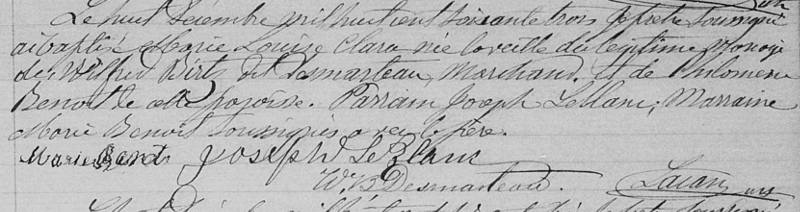 Le huit Décembre mil huit cent soixante trois Je prêtre soussigné
ai baptisé Marie Louise Clara née la veille du légitime mariage
de Wilfred Birtz dit Desmarteau, Marchand, et de Philomène
Benoit de cette paroisse. Parrain Joseph LeBlanc, Marraine
Marie Benoit soussignés avec le père.
Marie Benoit Joseph LeBlanc
W. B Desmarteau.